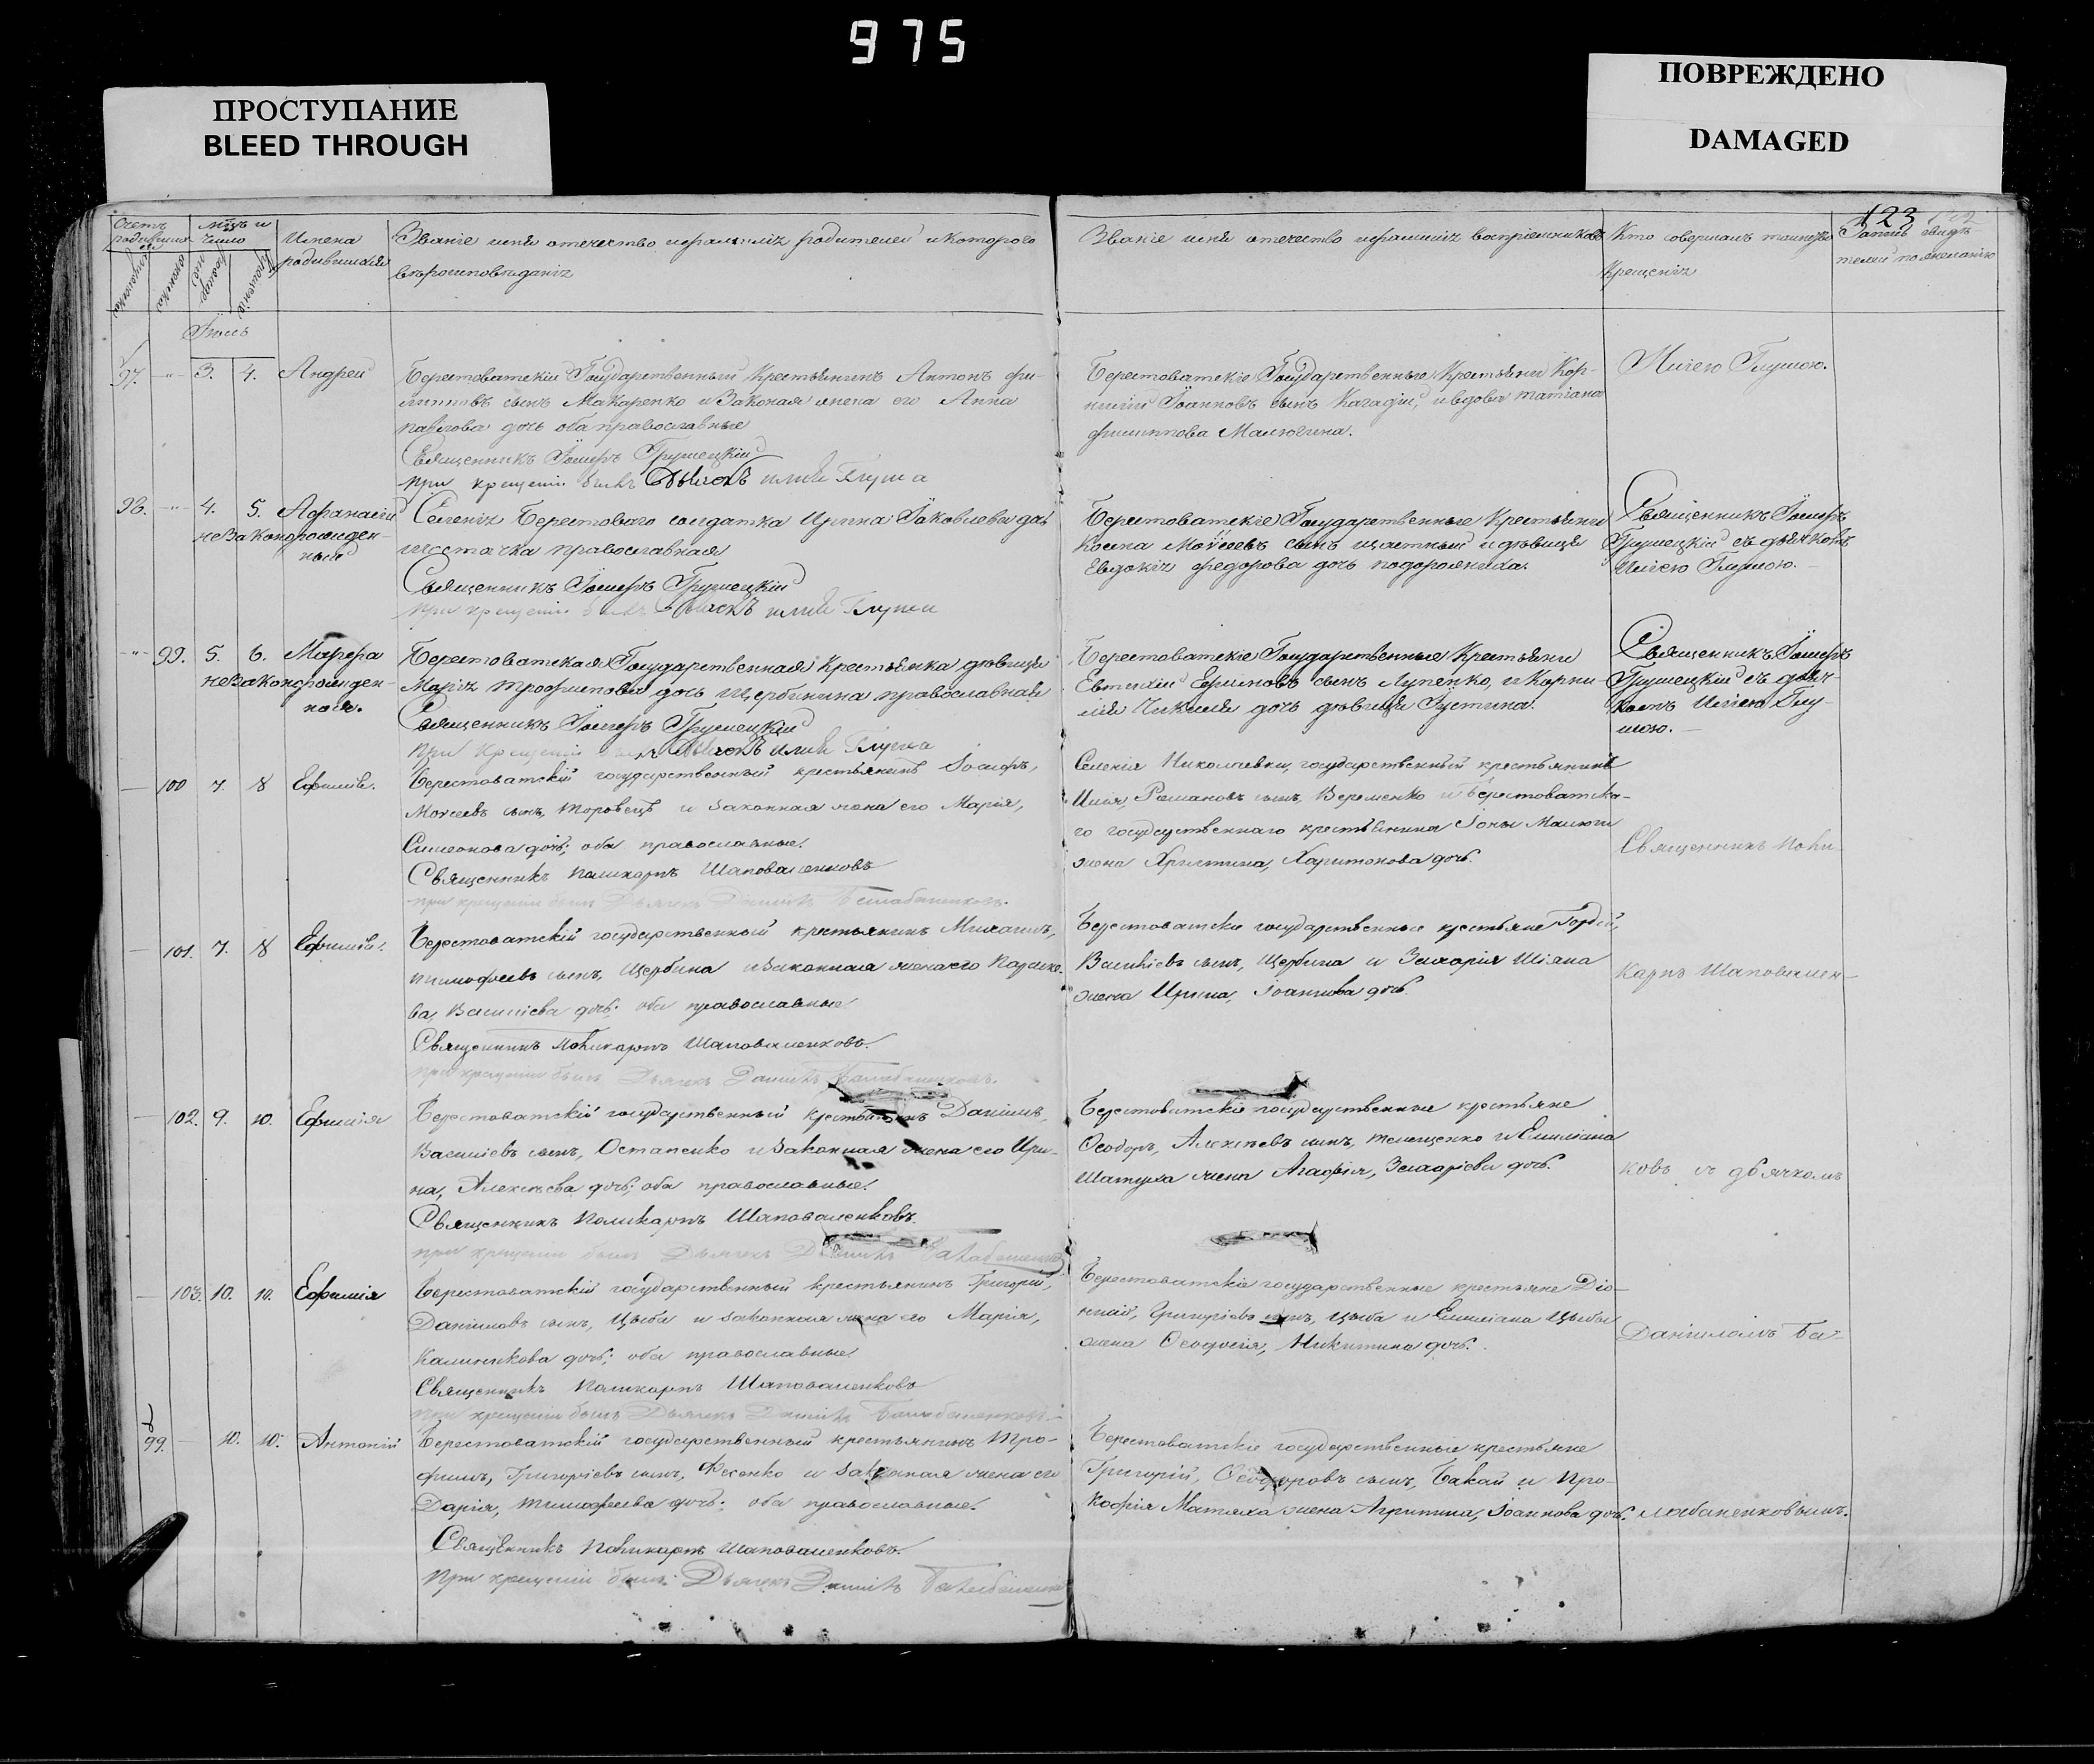 975
ПРОСТУПАНИЕ
BLEED THROUGH
ПОВРЕЖДЕНО
DAMAGED
123
Счетъ родившихся
мѣц и число
Имена родившихся
Званіе имя отечество и фамилія родителей и которого
вѣроисповѣданія
Званіе имя отечество и фамилія воспріемниковъ
Кто совершалъ таинство
Крещенія
Іюль
97. 3. 4. Андрей
Берестоватскій Государственный Крестьянинъ Антонъ Фи-
липповъ сынъ Макаренко и Законая жена его Анна
Павлова дочь оба православные
Священникъ Іосифъ Грушецкій
при крещеніи былъ Дьячокъ Илия Глуша
Берестоватскіе Государственные Крестьяни Кор-
нилий Іоанновъ сынъ и вдова Татіана
Филиппова Малюгина.
Илиею Глушою.
98. 4. 5. Афанасій
незаконорожден-
ный
Селенія Берестового солдатка Ирина Іаковлева дочь
православная
Священникъ Іосифъ Грушецкій
при крещеніи былъ Дьячокъ Илия Глуша
Берестоватскіе Государственные Крестьяни
Косма Моѵсеевъ сынъ и дѣвица
Евдокія Федорова дочь подорожниха.
Священникъ Іосифъ
Грушецкій съ дьячкомъ
Илиею Глушою.
99. 5. 6. Марфа
незаконорожден-
ная.
Берестоватская Государственная Крестьянка дѣвица
Марія Трофимова дочь Щербинина православная
Священникъ Іосифъ Грушецкій
при крещеніи былъ Дьячокъ Илия Глуша
Берестоватскіе Государственные Крестьяни
Евтихій Ефимовъ сынъ Лупенко, и Корни-
лія Чикиля дочь дѣвица Іустина.
Священникъ Іосифъ
Грушецкій съ дьяч-
комъ Илиею Глу-
шою.
100 7. 8 Ефимія.
Берестоватскій государственный крестьянинъ Іосифъ,
Моѵсеевъ сынъ, Торовецъ и законная жена его Марія,
Симеонова дочь; оба православные.
Священникъ Поликарпъ Шаповаленковъ
при крещеніи былъ Дьячекъ Даниилъ Балабаненковъ.
Селенія Николаевки, государственный крестьянинъ
Илія, Романовъ сынъ, Веременко и Берестоватска-
го государственнаго крестьянина Іоны Малюги
жена Христина, Харитонова дочь.
Священникъ Поли-
101. 7. 8 Ефимія.
Берестоватскій государственный крестьянинъ Михаилъ,
Тимофеевъ сынъ, Щербина и законная жена его
ва, Василіева дочь; оба православные.
Священникъ Поликарпъ Шаповаленковъ.
при крещеніи былъ Дьячекъ Даниилъ Балабаненковъ.
Берестоватскіе государственные крестьяне Гордій,
Василіевъ сынъ, Щербина и Захарія Шіяна
жена Ирина, Іоаннова дочь.
карпъ Шаповален-
102. 9. 10. Ефимія
Берестоватскій государственный крестьянинъ Даніилъ,
Василіевъ сынъ, Остапенко и законная жена его Ири-
на, Алексѣева дочь; оба православные.
Священникъ Поликарпъ Шаповаленковъ.
при крещеніи былъ Дьячекъ Даниилъ Балабаненковъ
Берестоватскіе государственные крестьяне
Ѳеодоръ, Алексѣевъ сынъ, Телещенко и Емиліана
жена Агафія, Захаріева дочь.
ковъ съ дьячкомъ
103. 10. 10. Ефимія
Берестоватскій государственный крестьянинъ Григорій,
Даниловъ сынъ, Цыба и законная жена его Марія,
Калиникова дочь; оба православные.
Священникъ Поликарпъ Шаповаленковъ
при крещеніи былъ Дьячекъ Даниилъ Балабаненковъ.
Берестоватскіе государственные крестьяне Діо-
нисій, Григоріевъ сынъ, Цыба и Емиліана Цыбы
жена Ѳеодосія, Никитина дочь.
Даниломъ Ба-
99. 10. 10. Антоній
Берестоватскій государственный крестьянинъ Тро-
фимъ, Григоріевъ сынъ, Фесенко и законная жена его
Дарія, Тимофеева дочь; оба православные.
Священникъ Поликарпъ Шаповаленковъ.
При крещеніи былъ Дьячекъ Даниилъ Балабаненко
Берестоватскіе государственные крестьяне
Григорій, Ѳеодоровъ сынъ, Бакай и Про-
кофія Матяха жена Агрипина, Іоаннова дочь.
лабаненковымъ.